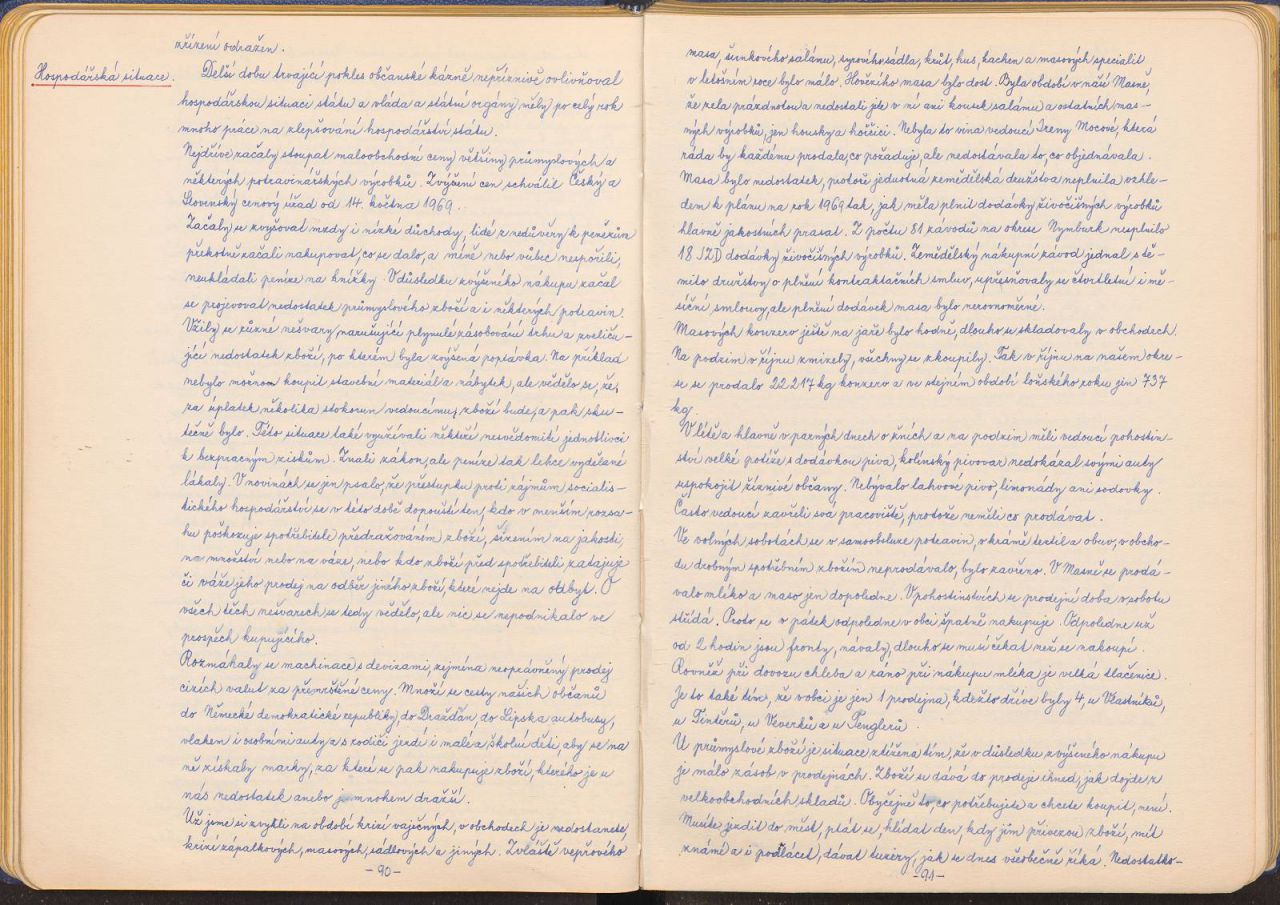 zřízení odražen.
Hospodářská situace.
Delší dobu trvající pokles občanské kázně nepříznivě ovlivňoval
hospodářskou situaci státu a vláda a státní orgány měly po celý rok
mnoho práce na zlepšování hospodářství státu.
Nejdříve začaly stoupat maloobchodní ceny většiny průmyslových a
některých potravinářských výrobků. Zvýšení cen schválil Český a
Slovenský cenový úřad od 14. května 1969.
Začaly se zvyšovat mzdy i nízké důchody, lidé z nedůvěry k penězům
překotně začali nakupovat, co se dalo, a méně nebo vůbec nespořili,
neukládali peníze na knížky. V důsledku zvýšeného nákupu začal
se projevovat nedostatek průmyslového zboží a i některých potravin.
Vžily se různé nešvary, narušující plynulé zásobování trhu a zveliču-
jící nedostatek zboží, po kterém byla zvýšená poptávka. Na příklad
nebylo možnom koupit stavební materiál a nábytek, ale vědělo se, že,
za úplatek několika stokorun vedoucímu, zboží bude, a pak sku-
tečně bylo. Této situace také využívali někteří nesvědomití jednotlivci
k bezpracným ziskům. Znali zákon, ale peníze tak lehce vydělané
lákaly. V novinách se jen psalo, že přestupku proti zájmům socialis-
tického hospodářství se v této době dopouští ten, kdo v menším rozsa-
hu poškozuje spotřebitele předražováním zboží, šizením na jakosti,
na množství nebo na váze, nebo kdo zboží před spotřebiteli zatajuje
či váže jeho prodej na odběr jiného zboží, které nejde na odbyt. O
všech těch nešvarech se tedy vědělo, ale nic se nepodnikalo ve
prospěch kupujícího.
Rozmáhaly se machinace s devizami, zejména neoprávněný prodej
cizích valut za přemrštěné ceny. Množí se cesty našich občanů
do Německé demokratické republiky, do Drážďan, do Lipska autobusy,
vlakem i osobními auty a s rodiči jezdí i malé a školní děti, aby se na
ně získaly marky, za které se pak nakupuje zboží, kterého je u
nás nedostatek anebo je mnohem dražší.
Už jsme si zvykli na období krizí vaječných, v obchodech je nedostanete,
krizí zápalkových, masových, sádlových a jiných. Zvláště vepřového
- 90 -
masa, šunkového salámu, syrového sádla, krůt, hus, kachen a masových specialit
v letošním roce bylo málo. Hovězího masa bylo dost. Byla období v naší Masně,
že zela prázdnotou a nedostali jste v ní ani kousek salámu a ostatních mas-
ných výrobků, jen housky a hořčici. Nebyla to vina vedoucí Ireny Mocové, která
ráda by každému prodala, co požaduje, ale nedostávala to, co objednávala.
Masa bylo nedostatek, protože jednotná zemědělská družstva neplnila vzhle-
dem k plánu na rok 1969 tak, jak měla plnit dodávky živočišných výrobků
hlavně jakostních prasat. Z počtu 81 závodů na okrese Nymburk nesplnilo
18 JZD dodávky živočišných výrobků. Zemědělský nákupní závod jednal s tě-
mito družstvy o plnění kontraktačních smluv, upřesňovaly se čtvrtletní i mě-
síční smlouvy, ale plnění dodávek masa bylo nerovnoměrné.
Masových konzerv ještě na jaře bylo hodně, dlouho se skladovaly v obchodech.
Na podzim v říjnu zmizely, všechny se zkoupily. Tak v říjnu na našem okre-
se se prodalo 22 217 kg konzerv a ve stejném období loňského roku jen 737
kg.
V létě a hlavně v parných dnech o žních a na podzim měli vedoucí pohostin-
ství velké potíže s dodávkou piva, kolínský pivovar nedokázal svými auty
uspokojit žíznivé občany. Nebývalo lahvové pivo, limonády ani sodovky.
Často vedoucí zavřeli svá pracoviště, protože neměli co prodávat.
Ve volných sobotách se v samoobsluze potravin, v krámě textil a obuv, v obcho-
du drobným spotřebním zbožím neprodávalo, bylo zavřeno. V Masně se prodá-
valo mléko a maso jen dopoledne. V pohostinstvích se prodejní doba v sobotu
střídá. Proto se v pátek odpoledne v obci špatně nakupuje. Odpoledne už
od 2 hodin jsou fronty, návaly, dlouho se musí čekat než se nakoupí.
Rovněž při dovozu chleba a ráno při nákupu mléka je velká tlačenice.
Je to také tím, že v obci je jen 1 prodejna, kdežto dříve byly 4, u Vlastníků,
u Tintěrů, u Veverků a u Fenglerů.
U průmyslové zboží je situace ztížena tím, že v důsledku zvýšeného nákupu
je málo zásob v prodejnách. Zboží se dává do prodeje ihned, jak dojde z
velkoobchodních skladů. Obyčejně to, co potřebujete a chcete koupit, není.
Musíte jezdit do měst, ptát se, hlídat den, kdy jim přivezou zboží, mít
známé a i podplácet, dávat tuzéry, jak se dnes všeobecně říká. Nedostatko-
- 91 -